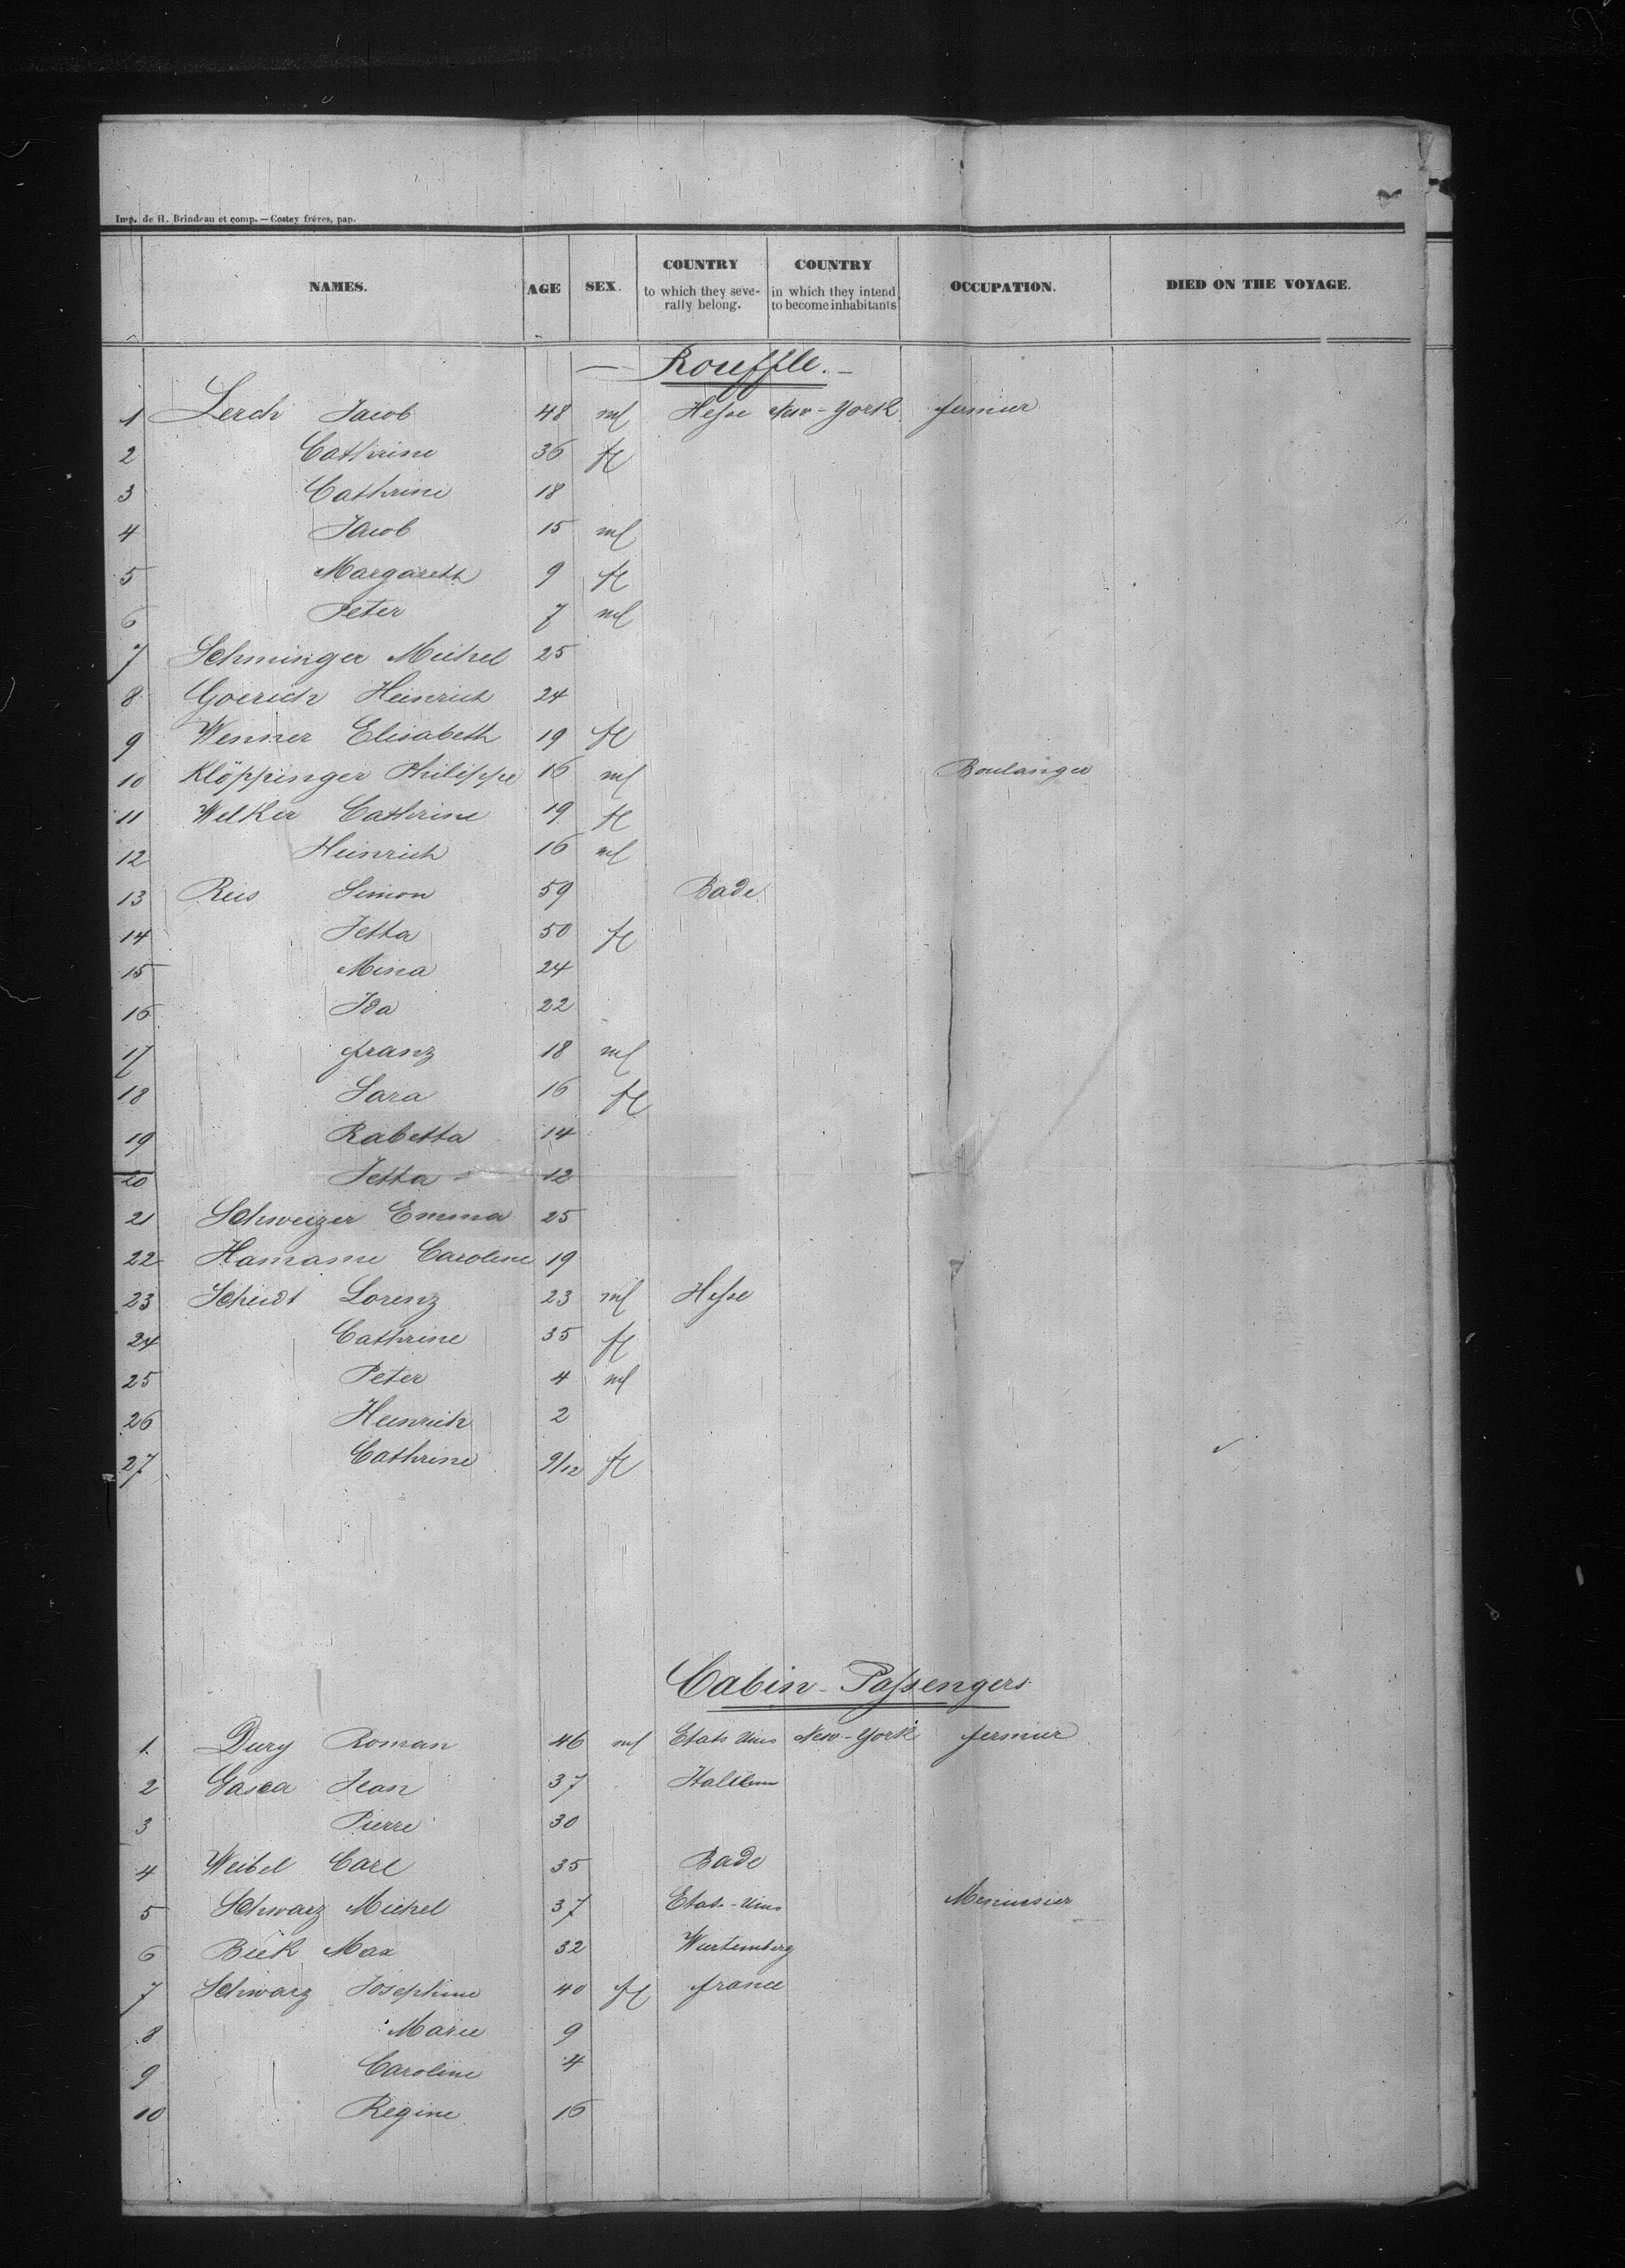 Imp. de H. Brindeau et comp. — Costey frères, pap.
NAMES. AGE SEX. COUNTRY to which they seve-rally belong. COUNTRY in which they intend to become inhabitants OCCUPATION. DIED ON THE VOYAGE.
— Rouffle. —
1 Lerch Jacob 48 ml Hesse New-York fermier
2 Cathrine 36 fl
3 Cathrine 18
4 Jacob 15 ml
5 Margareth 9 fl
6 Peter 7 ml
7 Schminger Michel 25
8 Goerich Heinrich 24
9 Wenner Elisabeth 19 fl
10 Klöppinger Philippe 16 ml Boulanger
11 Welker Cathrine 19 fl
12 Heinrich 16 ml
13 Reis Simon 59 Bade
14 Jetta 50 fl
15 Mina 24
16 Ida 22
17 franz 18 ml
18 Sara 16 fl
19 Rabetta 14
20 Jetta 12
21 Schweizer Emma 25
22 Hamame Caroline 19
23 Scheidt Lorenz 23 ml Hesse
24 Cathrine 35 fl
25 Peter 4 ml
26 Heinrich 2
27 Cathrine 9/12 fl
Cabin-Passengers
1 Dury Roman 46 ml Etats Unis New-York fermier
2 Gasca Jean 37
3 Pierre 30
4 Weibel Carl 35 Bade
5 Schwarz Michel 37 Etats-Unis Menuisier
6 Bick Max 32 Wurtemberg
7 Schwarz Josephine 40 fl france
8 Marie 9
9 Caroline 4
10 Regine 16